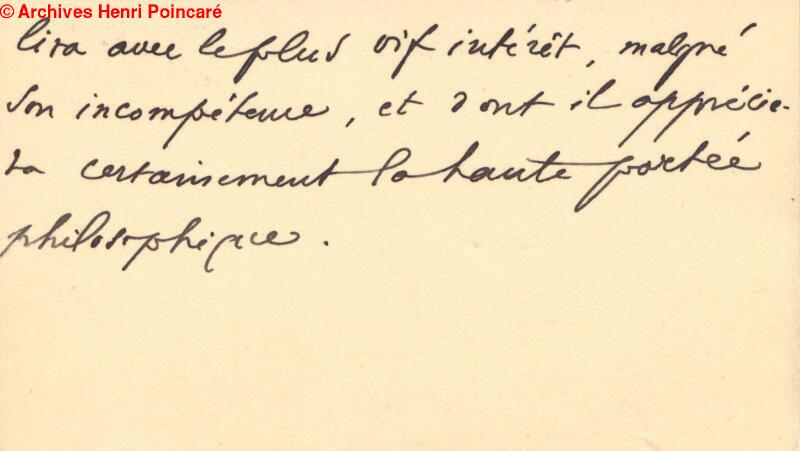 © Archives Henri Poincaré
lira avec le plus vif intérêt, malgré
son incompétence, et dont il apprécie-
ra certainement la haute portée
philosophique.